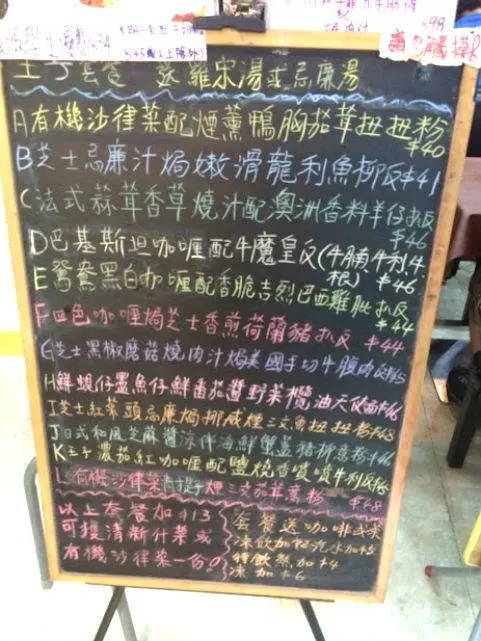 $34
$45
$98
套餐 送 羅宋湯或忌廉湯
A有機沙律菜配煙薰鴨胸茄茸扭扭粉 $40
B芝士忌廉汁焗嫩滑龍利魚柳反$41
C法式蒜茸香草燒汁配澳洲香料羊仔扒反 $46
D巴基斯坦咖喱配牛魔皇反(牛腩,牛利,牛根) $46
E鴛鴦黑白咖喱配香脆吉烈巴西雞脾扒反 $44
F四色咖喱焗芝士香煎荷蘭豬扒反 $44
G芝士黑椒蘑菇燒肉汁焗美國手切牛腹肉反
H鮮蜆仔墨魚仔鮮番茄醬野菜欖油天使面
I芝士紅菜頭忌廉焗挪威煙三文魚扭扭粉$48
J日式和風芝麻醬涼伴海鮮蟹蓋豬柳意粉$46
K王子濃茄紅咖喱配鹽燒牛利反
L有機沙律菜青提子煙三文茄茸薯粉 $48
以上套餐加$13
可獲清新什菜或
有機沙律菜一份。
套餐送咖啡或茶
凍飲加$2汽水加$5
特飲熱加$4
凍加$6